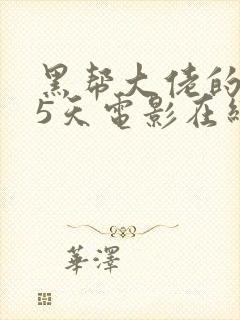 黑帮大佬的
5天电影在
華澤